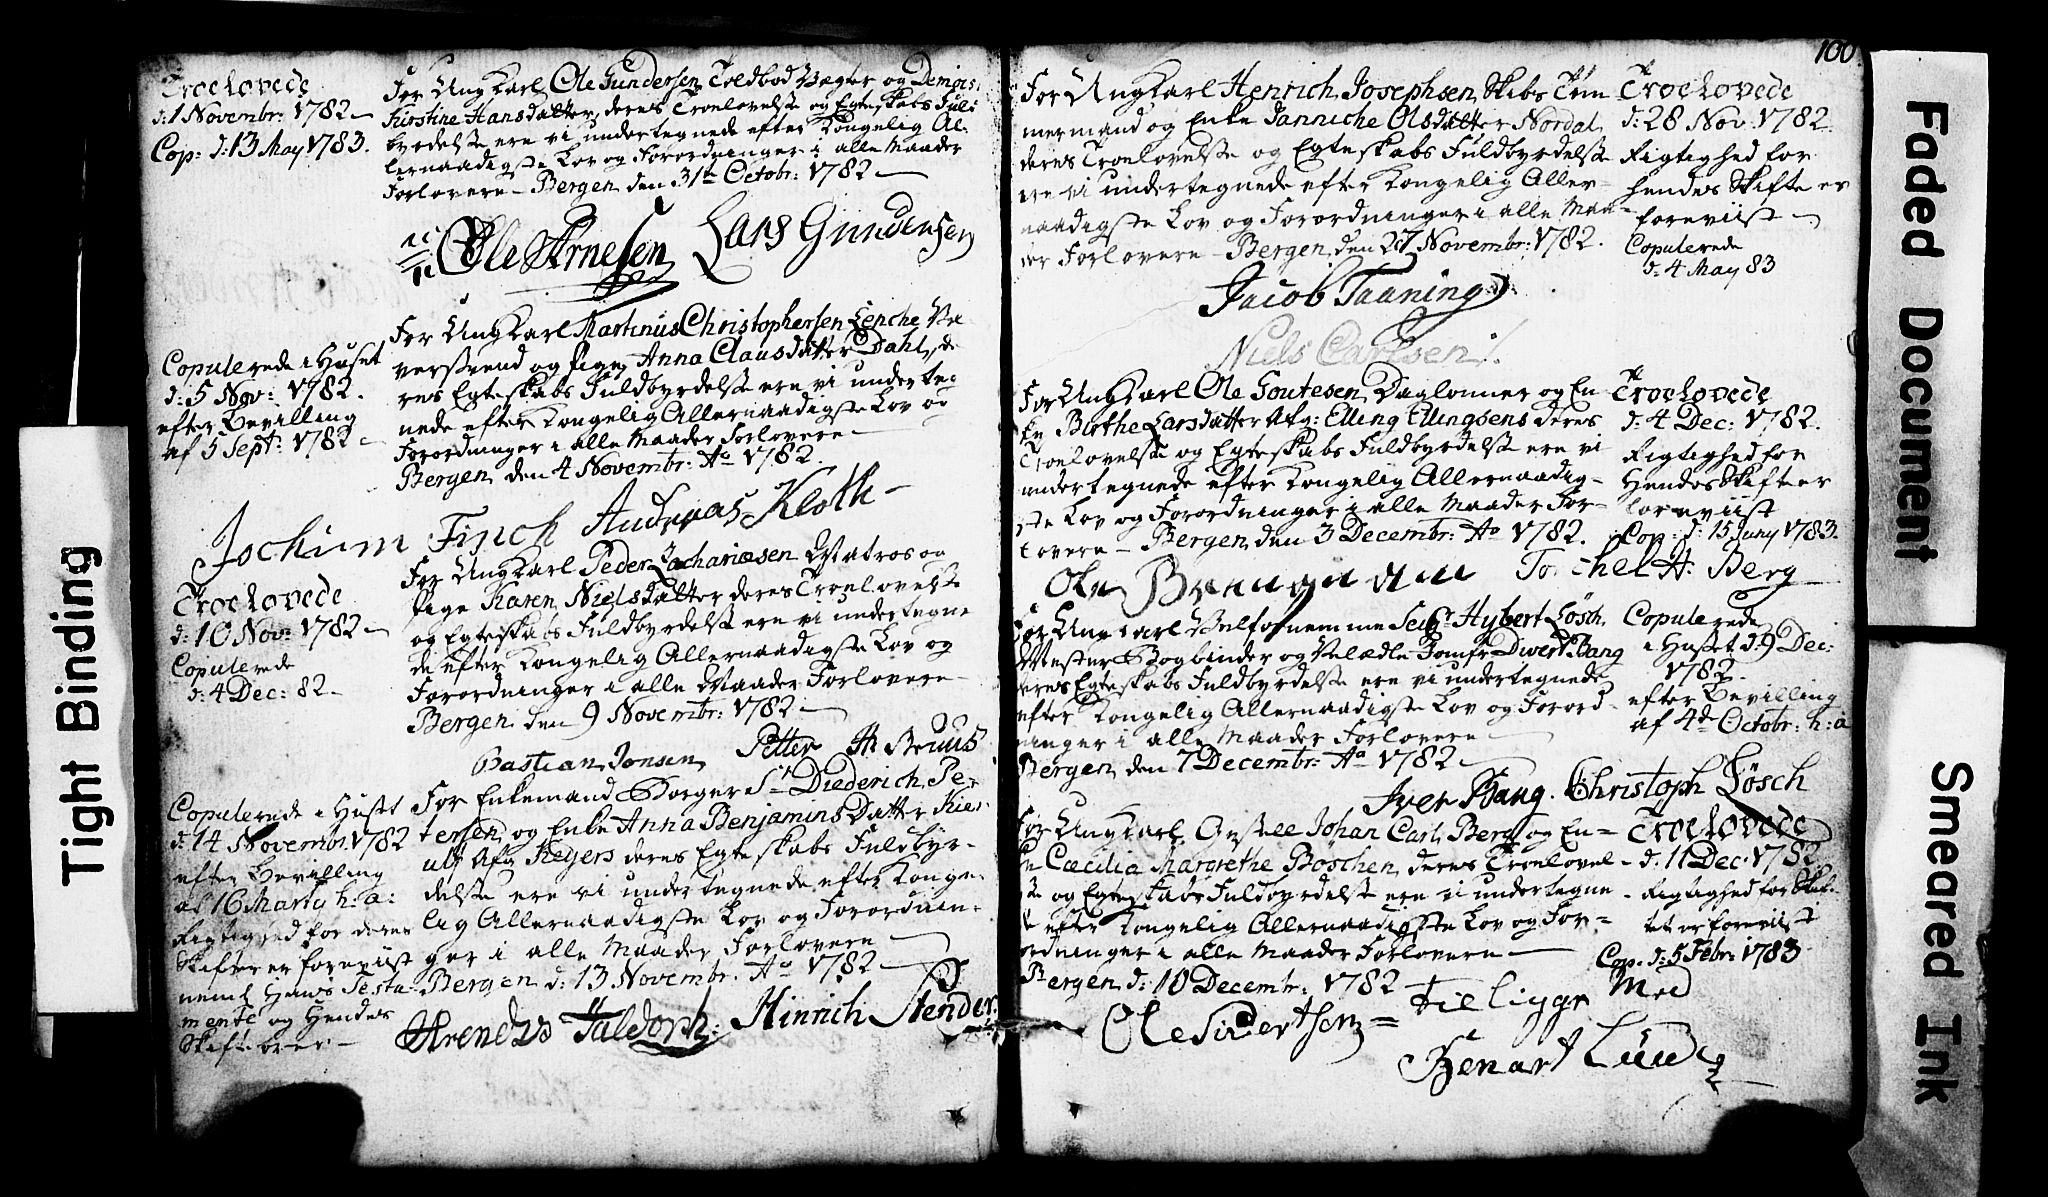 Troelovede
d: 1 Novembr: 1782
Cop: d: 13 May 1783.
For Ung Karl Ole Gundersen Toldbod Vægter og
Kirstine Hansdatter, deres Troelovelse og Egteskabs Ful-
byrdelse ere vi undertegnede efter Kongelig Al-
lernaadigste Lov og Forordninger i alle Maader
Forlovere – Bergen den 31te Octobr: 1782
Ole Arnesen Lars Gundersen
Copulerede i Huset
d: 5 Nov: 1782.
efter Bevilling
af 5 Sept: 1782
For Ung Karl Martinus Christophersen Lenche
og Pige Anna Clausdatter Dahl, de-
res Egteskabs Fuldbyrdelse ere vi underteg-
nede efter Kongelig Allernaadigste Lov og
Forordninger i alle Maader Forlovere
Bergen den 4 Novembr: Ao 1782.
Jochum Finch Andreas Kloth
Troelovede
d: 10 Nov: 1782
Copulerede
d: 4 Dec: 82
For Ung Karl Peder Zachariæsen Matros og
Pige Karen Nielsdatter deres Troelovelse
og Egteskabs Fuldbyrdelse ere vi undertegne-
de efter Kongelig Allernaadigste Lov og
Forordninger i alle Maader Forlovere
Bergen den 9 Novembr: 1782
Bastian Jonsen Petter H: Bruus
Copulerede i Huset
d: 14 Novembr: 1782
efter Bevilling
af 16 Marty h: a:
Rigtighed for deres
Skifter er foreviist
neml Hans Testa-
mente og Hendes
Skiftebrev
For Enkemand Borger Sr Diederich Pe-
tersen og Enke Anna Benjamins Datter
Afg Meyers deres Egteskabs Fuldbyr-
delse ere vi undertegnede efter Konge-
lig Allernaadigste Lov og Forordnin-
ger i alle Maader Forlovere
Bergen d: 13 Novembr: Ao 1782
Arendts Faldorph: Hinrich Stender
100
For Ung Karl Henrich Josephsen Skibs Tøm-
mermand og Enke Janniche Olsdatter Nordal
deres Troelovelse og Egteskabs Fuldbyrdelse
ere vi undertegnede efter Kongelig Aller-
naadigste Lov og Forordninger i alle Maa-
der Forlovere – Bergen den 27 Novembr: 1782.
Troelovede
d: 28 Nov: 1782
Rigtighed for
hendes Skifte er
foreviist
Copulerede
d: 4 May 83
Jacob Taaning
Niels Carlsen
For Ung Karl Ole Goutesen Daglønner og En-
ke Birthe Larsdatter Afg: Elling Ellingsens deres
Troelovelse og Egteskabs Fuldbyrdelse ere vi
undertegnede efter Kongelig Allernaadig-
ste Lov og Forordninger i alle Maader For-
lovere – Bergen den 3 Decembr: Ao 1782.
Troelovede
d: 4 Dec: 1782.
Rigtighed for
Hendes Skifte er
foreviist
Cop: d: 15 Juny 1783.
Torchel H. Berg
For Ung Karl Velfornemme Sr Hybert Lösch,
Mester Bogbinder og Velædle Jomfr Divert Bang
deres Egteskabs Fuldbyrdelse ere vi undertegnede
efter Kongelig Allernaadigste Lov og Forord-
ninger i alle Maader Forlovere
Bergen den 7 Decembr: Ao 1782
Copulerede
i Huset d: 9 Dec:
1782.
efter Bevilling
af 4de Octobr: h: a
Iver Bang. Christoph Lösch
For Ung Karl Johan Carl Berg og En-
ke Cæcilia Margrethe Böschen, deres Troelovel-
se og Egteskabs Fuldbyrdelse ere vi undertegne-
de efter Kongelig Allernaadigste Lov og For-
ordninger i alle Maader Forlovere
Bergen d: 10 Decembr: 1782
Troelovede
d: 11 Dec: 1782
Rigtighed for Skif-
tet er foreviist
Cop. d: 5 Febr: 1783
Ole Sivertsen
Benart Lund
Tight Binding
Faded Document
Smeared Ink